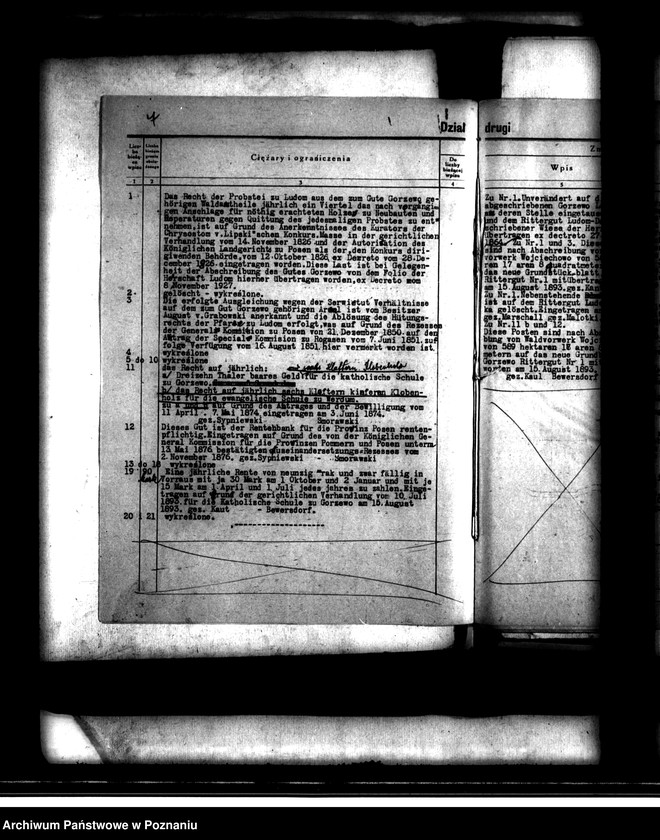 Dział drugi
Liczba bieżąca wpisu
Ciężary i ograniczenia
Do liczby bieżącej wpisu
Wpis
1 2 3 4 5
1 Das Recht der Probstei zu Ludom aus dem zum Gute Gorzewo ge-
hörigen Waldantheils jährlich ein Viertel das nach vorgängi-
gen Anschlage für nöthig erachteten Holzes zu Neubauten und
Reperaturen gegen Quittung des jedesmaligen Probstes zu ent-
nehmen, ist auf Grund des Anerkenntnisses des Kurators der
v.Lipski'schen Konkurs.Masse in der gerichtlichen
Verhandlung vom 14.November 1826 und der Autorisation des
Königlichen Landgerichts zu Posen als der, den Konkurs diri-
givenden Behörde, vom 12.Oktober 1826, ex Decreto vom 28.De-
cember 1826 eingetragen worden. Diese Last ist bei Gelegen-
heit der Abschreibung des Gutes Gorzewo von dem Folio der
Herrschaft Ludom hierher übertragen worden, ex Decreto vom
8 November 1927.
2 gelöscht - wykreślone.
3 Die erfolgte Ausgleichung wegen der Servitut Verhältnisse
auf dem zum Gut Gorzewo gehörigen Areal ist vom Besitzer
August v.Grabowski anerkannt und die Ablösung des Hütungs-
rechts der Pfarre zu Ludom erfolgt, was auf Grund des Rezesses
der General Komission zu Posen von 21.Dezember 1850.auf den
Antrag der Special Komission zu Rogasen vom 7.Juni 1851.zuf
folge Verfügung vom 16.August 1851.hier vermerkt worden ist.
4 wykreślone
5 do 10 wykreślone
11 das Recht auf jährlich:
a/ Dreizehn Thaler baares Geld für die katholische Schule
zu Gorzewo.
b/ das Recht auf jährlich sechs Klaftern kiefern Kloben-
holz für die evangelische Schule zu Werdum.
zu a und b auf Grund des Antrages und der Bewilligung vom
11 April - 7.Mai 1874, eingetragen am 3.Juni 1874.
gez.Sypniewski - Smorawski
12 Dieses Gut ist der Rentenbank für die Provinz Posen renten-
pflichtig.Eingetragen auf Grund des von der Königlichen Ge-
neral Komission für die Provinzen Pommern und Posen unterm
13 Mai 1876 bestätigten Auseinandersetzungs-Rezesses vom
2.November 1876. gez.Sypniewski - Smorawski
13 do 18 wykreślone
19 90 Eine jährliche Rente von neunzig Mark und zwar fällig in
Vorraus mit je 30 Mark am 1 Oktober und 2 Januar und mit je
15 Mark am 1 April und 1 Juli jedes jahres zu zahlen. Einge-
tragen auf Grund der gerichtlichen Verhandlung vom 10.Juli
1893.für die Katholische Schule zu Gorzewo am 15.August
1893. gez. Kaut - Bewersdorf.
20 21 wykreślone.
Zu Nr.1.Unverändert auf
abgeschriebenen Gorzewo
an deren Stelle eingetau
und dem Rittergut Ludom
schriebener Wiese der
übertragen ex decreto
1864. Zu Nr.1 und 3. Diese
sind nach Abschreibung vo
vorwerk Wojciechowo von
das neue Grundstücksblatt
Rittergut Nr.1 mitübertra
am 15 August 1893.gez.Kau
Zu Nr.1.Nebenstehende
als auf dem Rittergut Lud
ka gelöscht.Eingetragen a
gez.Marschell gez.Malotki
Zu Nr.11 b und 12.
Diese Posten sind nach Ab
bung von Waldvorwerk Wojc
von 589 hektaren 12 aren
metern auf das neue Grund
Gorzewo Rittergut Nr 1 mi
worden am 15.August 1893.
gez.Kaul Bewersdorf
Archiwum Państwowe w Poznaniu